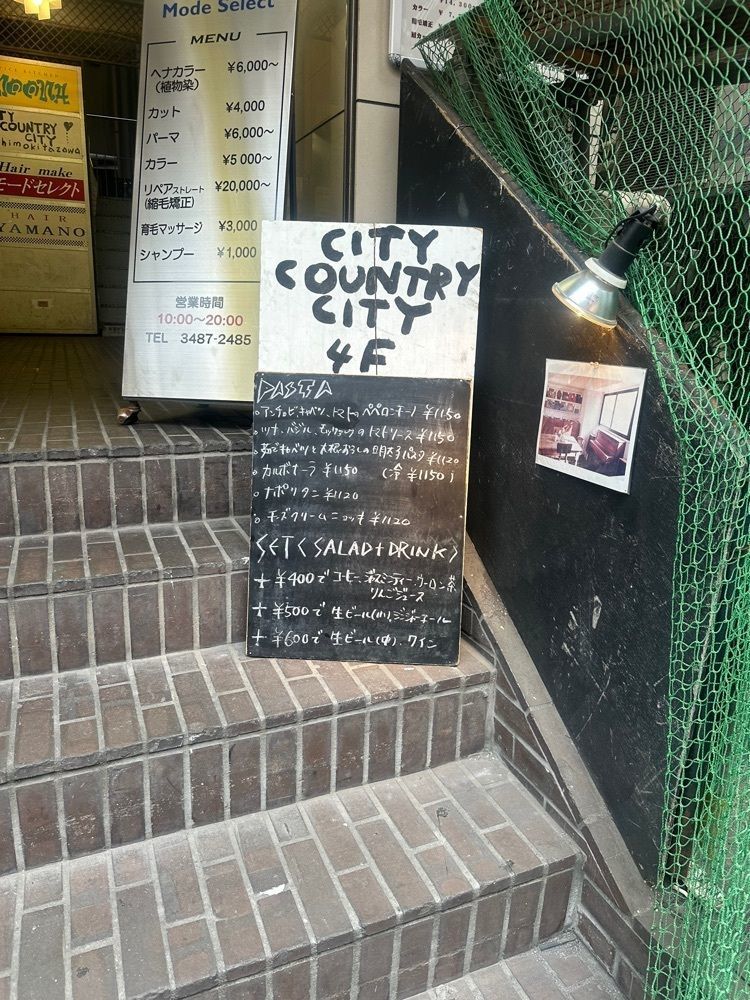 CITY
COUNTRY
CITY
himokitazawa
Hair make
モードセレクト
HAIR
YAMANO
Mode Select
MENU
ヘナカラー ¥6,000～
(植物染)
カット ¥4,000
パーマ ¥6,000～
カラー ¥5 000～
リペアストレート ¥20,000～
(縮毛矯正)
育毛マッサージ ¥3,000
シャンプー ¥1,000
営業時間
10:00～20:00
TEL 3487-2485
カラー
CITY
COUNTRY
CITY
4F
PASTA
。アンチョビ、キャベツ、トマトのペペロンチーノ ¥1150
。ツナ、バジル、のトマトソース ¥1150
。茹でキャベツと大根おろしの明太子パスタ ¥1120
。カルボナーラ ¥1150 (冷 ¥1150)
。ナポリタン ¥1120
。チーズクリームニョッキ ¥1120
SET<SALAD+DRINK>
+ ¥400で コーヒー、ジャスミンティー、ウーロン茶
りんごジュース
+ ¥500で 生ビール(小)、ジンジャーエール
+ ¥600で 生ビール(中)、ワイン